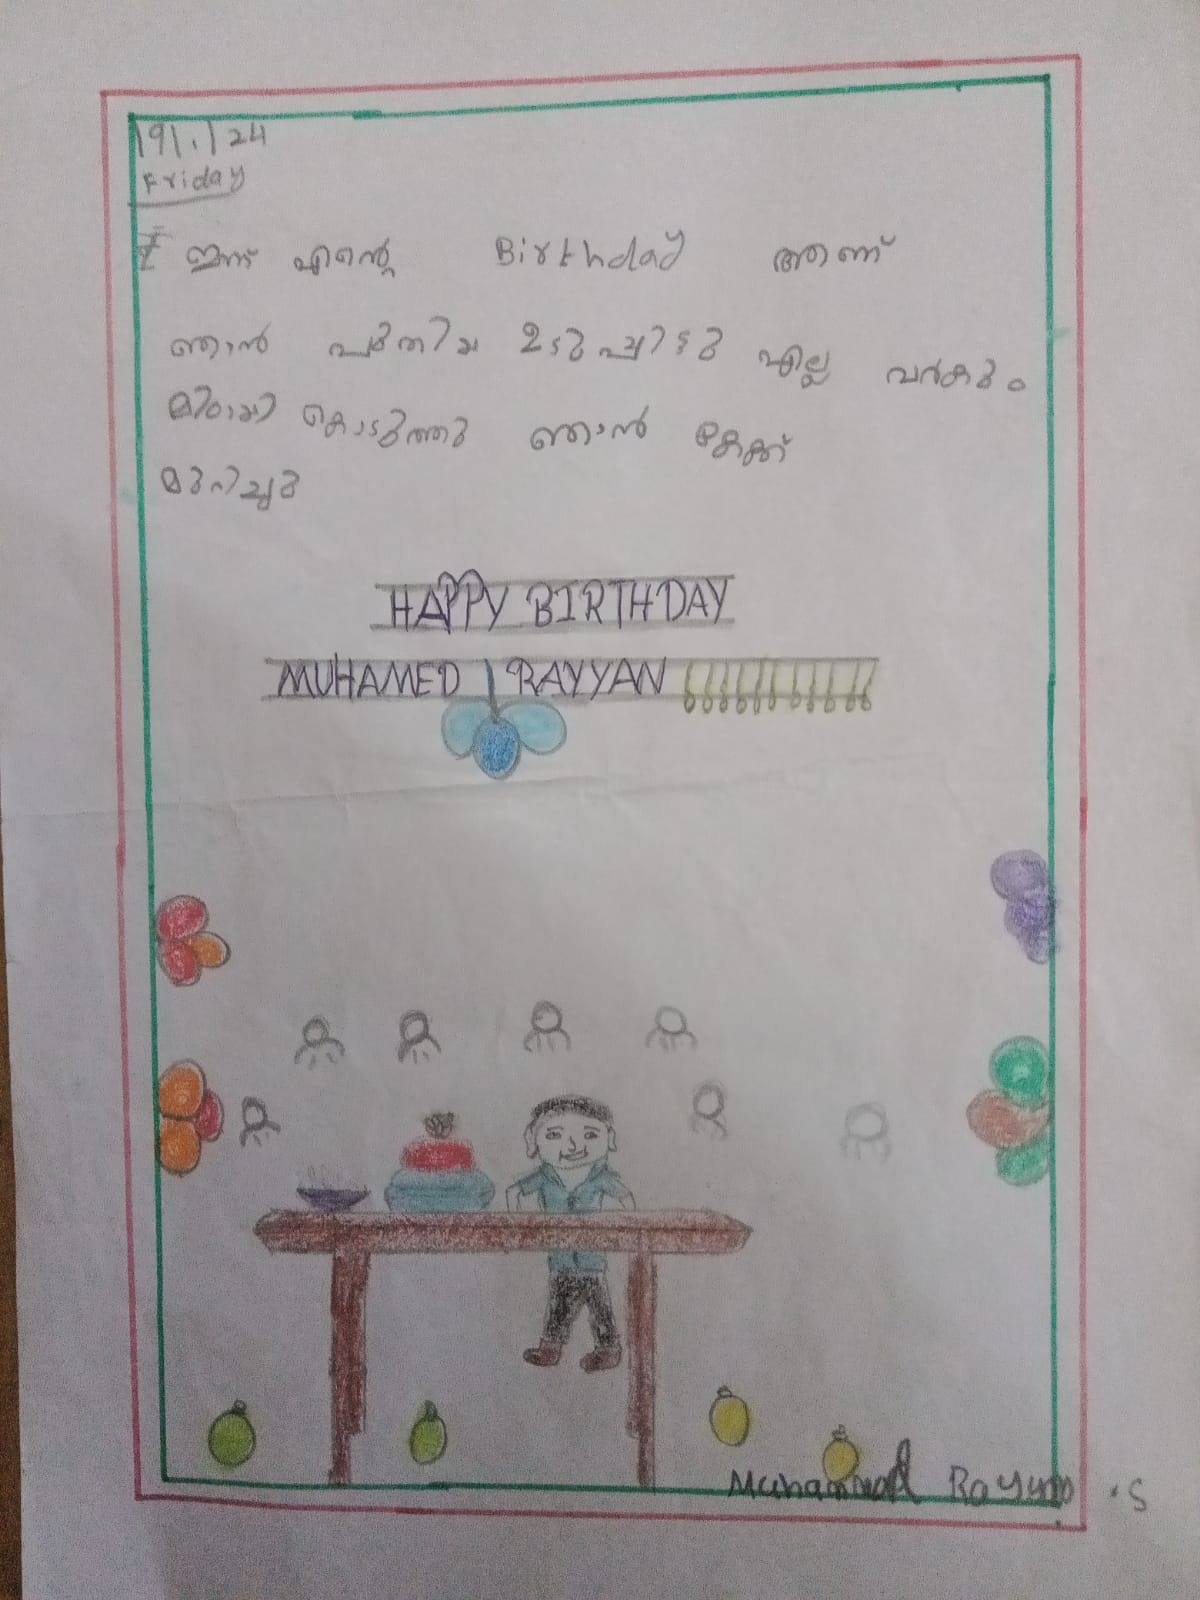 19/1/24
Friday
ഇന്ന് എന്റെ Birthday ആണ്
ഞാൻ പുതിയ ഉടുപ്പിട്ടു എല്ല വർകും
മിഠായി കൊടുത്തു ഞാൻ കേക്ക്
മുറിച്ചു
HAPPY BIRTHDAY
MUHAMED RAYYAN
Muhammad Rayyan .S